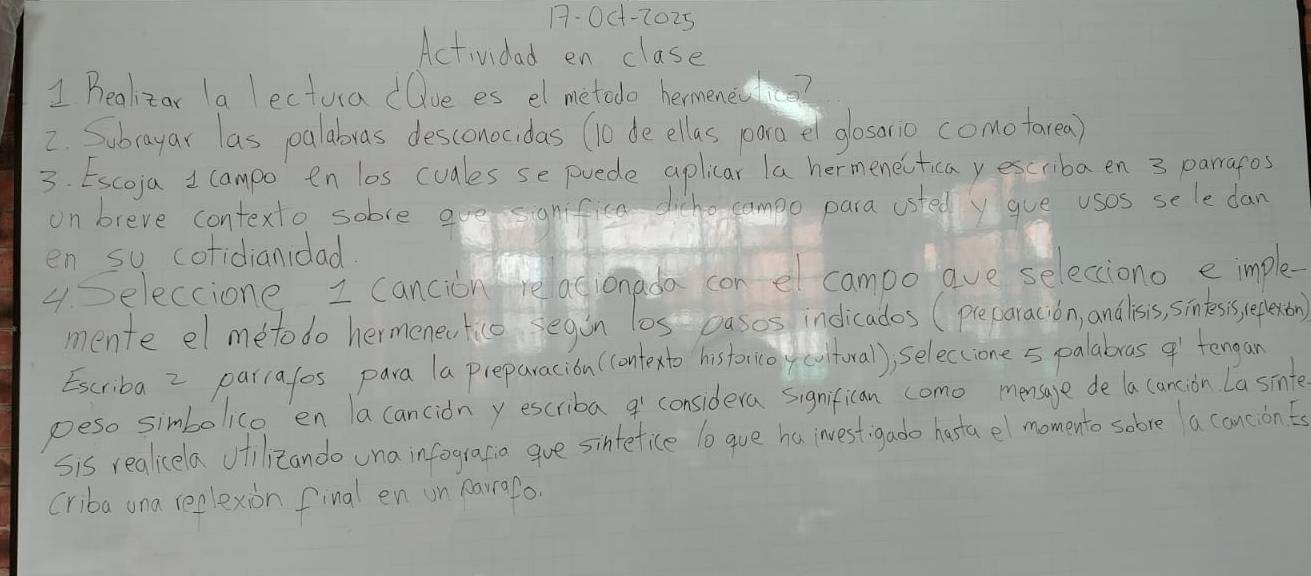 17-Oct-2025
Actividad en clase
1 Realizar la lectura ¿Que es el método hermenéutico?
2. Subrayar las palabras desconocidas (10 de ellas para el glosario como tarea)
3. Escoja 1 campo en los cuales se puede aplicar la hermenéutica y escriba en 3 parrafos
un breve contexto sobre que significa dicho campo para usted y que usos se le dan
en su cotidianidad.
4. Seleccione 1 canción relacionada con el campo que selecciono e imple-
mente el método hermeneutico según los pasos indicados (preparación, análisis, síntesis, reflexión)
Escriba 2 parrafos para la preparación (contexto historico y cultural); seleccione 5 palabras q' tengan
peso simbolico en la canción y escriba q' considera significan como mensaje de la canción. La sínte-
sis realicela utilizando una infografia que sintetice lo que ha investigado hasta el momento sobre la canción. Es
criba una reflexión final en un parrafo.